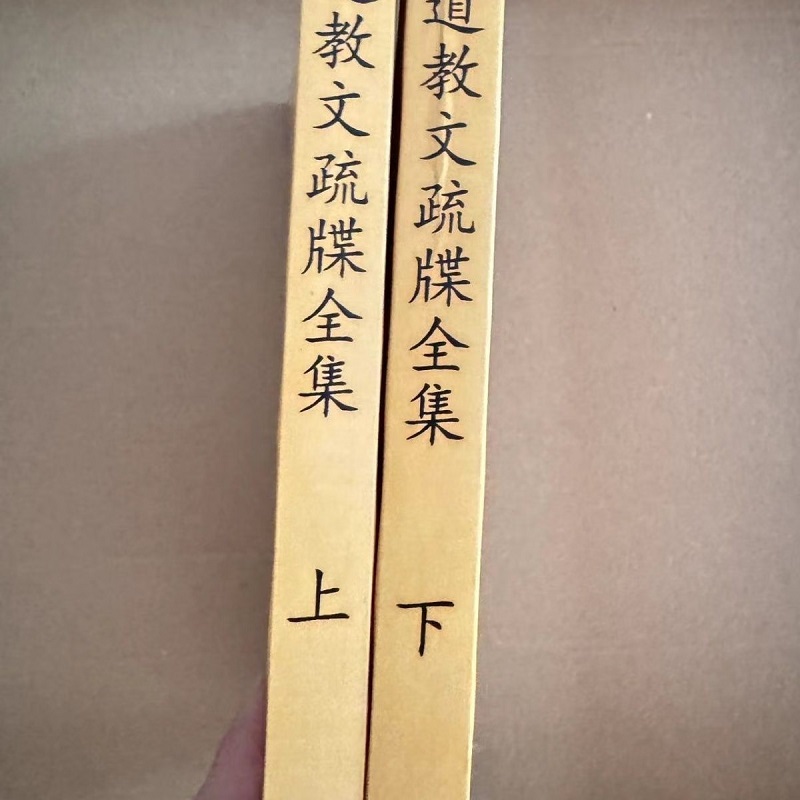 道教文疏牒全集 上
道教文疏牒全集 下